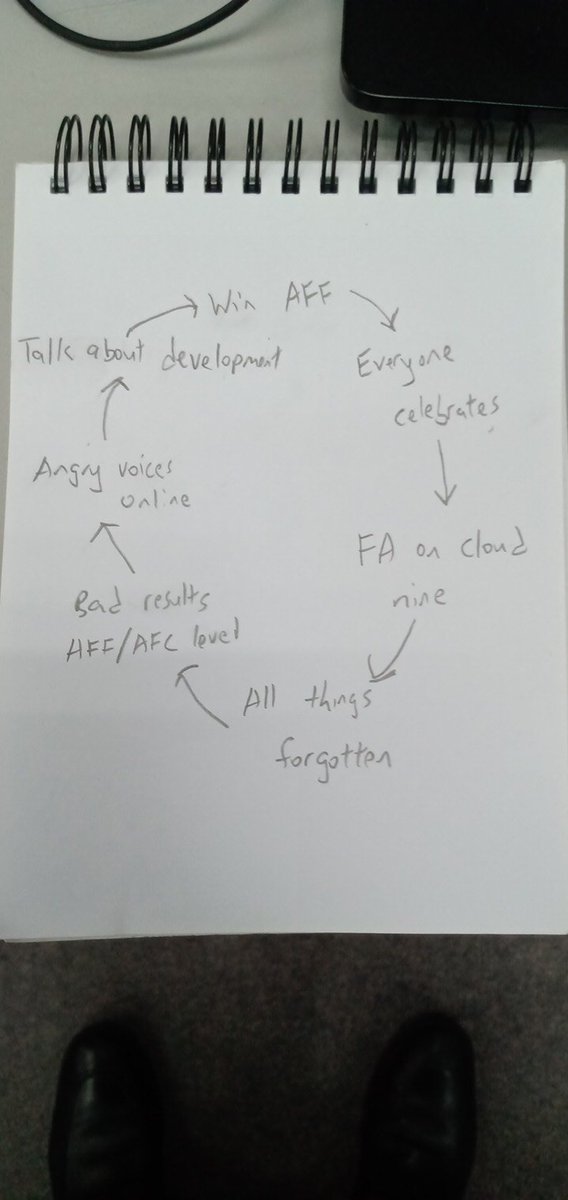 Win AFF
Everyone
celebrates
FA on cloud
nine
All things
forgotten
Bad results
AFF/AFC level
Angry voices
online
Talk about development